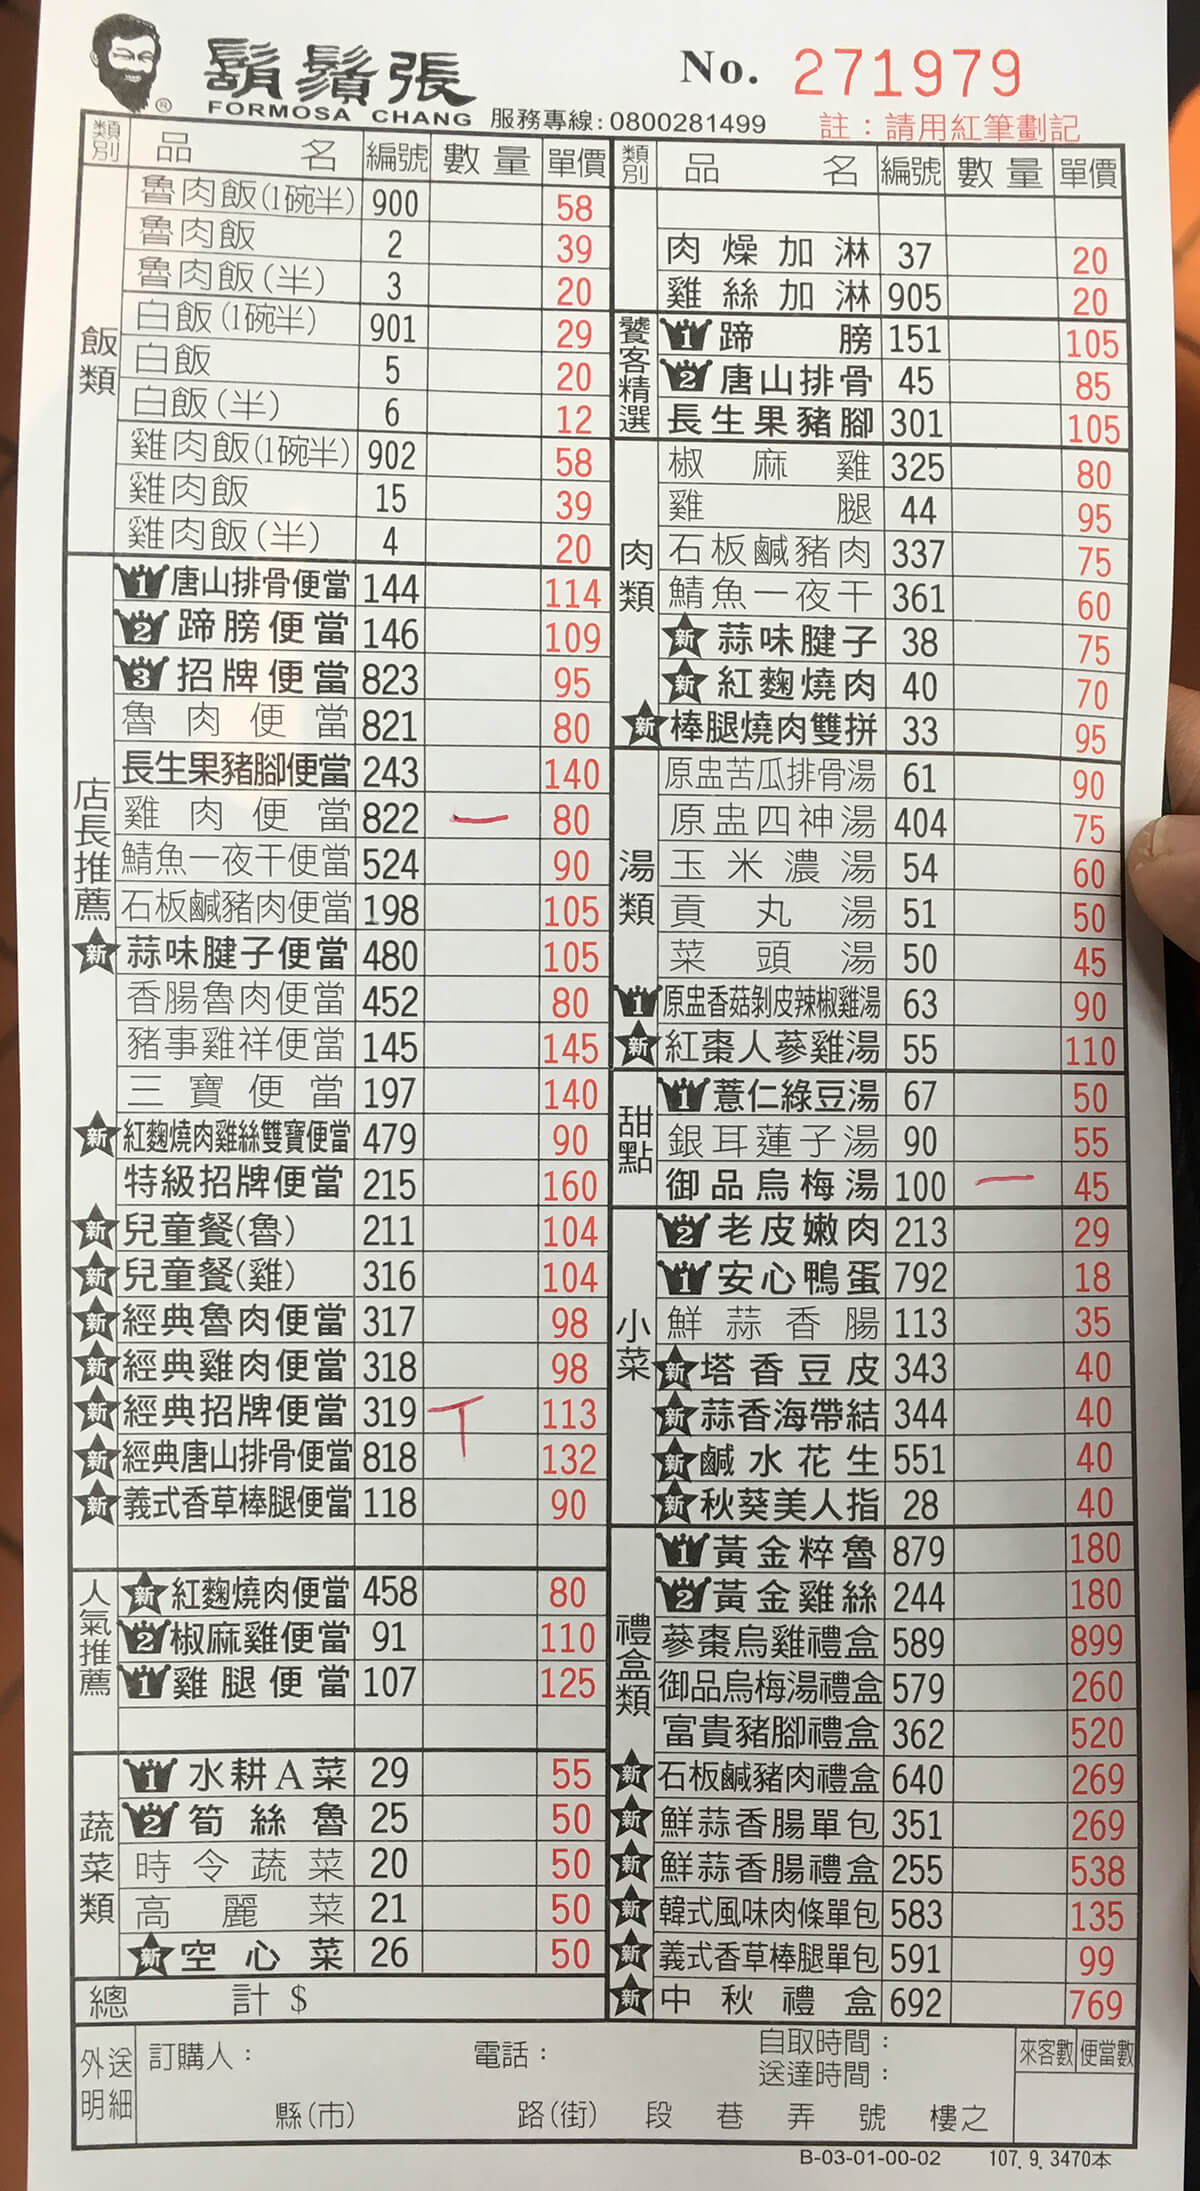 鬍鬚張
FORMOSA CHANG
服務專線:0800281499
No. 271979
註：請用紅筆劃記
類別 品名 編號 數量 單價
飯類
魯肉飯(1碗半) 900 58
魯肉飯 2 39
魯肉飯(半) 3 20
白飯(1碗半) 901 29
白飯 5 20
白飯(半) 6 12
雞肉飯(1碗半) 902 58
雞肉飯 15 39
雞肉飯(半) 4 20
店長推薦
1 唐山排骨便當 144 114
2 蹄膀便當 146 109
3 招牌便當 823 95
魯肉便當 821 80
長生果豬腳便當 243 140
雞肉便當 822 一 80
鯖魚一夜干便當 524 90
石板鹹豬肉便當 198 105
新 蒜味腱子便當 480 105
香腸魯肉便當 452 80
豬事雞祥便當 145 145
三寶便當 197 140
新 紅麴燒肉雞絲雙寶便當 479 90
特級招牌便當 215 160
新 兒童餐(魯) 211 104
新 兒童餐(雞) 316 104
新 經典魯肉便當 317 98
新 經典雞肉便當 318 98
新 經典招牌便當 319 丅 113
新 經典唐山排骨便當 818 132
新 義式香草棒腿便當 118 90
人氣推薦
新 紅麴燒肉便當 458 80
2 椒麻雞便當 91 110
1 雞腿便當 107 125
蔬菜類
1 水耕A菜 29 55
2 筍絲魯 25 50
時令蔬菜 20 50
高麗菜 21 50
新 空心菜 26 50
總計 $
類別 品名 編號 數量 單價
肉燥加淋 37 20
雞絲加淋 905 20
饕客精選
1 蹄膀 151 105
2 唐山排骨 45 85
長生果豬腳 301 105
肉類
椒麻雞 325 80
雞腿 44 95
石板鹹豬肉 337 75
鯖魚一夜干 361 60
新 蒜味腱子 38 75
新 紅麴燒肉 40 70
新 棒腿燒肉雙拼 33 95
湯類
原盅苦瓜排骨湯 61 90
原盅四神湯 404 75
玉米濃湯 54 60
貢丸湯 51 50
菜頭湯 50 45
1 原盅香菇剝皮辣椒雞湯 63 90
新 紅棗人蔘雞湯 55 110
甜點
1 薏仁綠豆湯 67 50
銀耳蓮子湯 90 55
御品烏梅湯 100 一 45
小菜
2 老皮嫩肉 213 29
1 安心鴨蛋 792 18
鮮蒜香腸 113 35
新 塔香豆皮 343 40
新 蒜香海帶結 344 40
新 鹹水花生 551 40
新 秋葵美人指 28 40
禮盒類
1 黃金粹魯 879 180
2 黃金雞絲 244 180
蔘棗烏雞禮盒 589 899
御品烏梅湯禮盒 579 260
富貴豬腳禮盒 362 520
新 石板鹹豬肉禮盒 640 269
新 鮮蒜香腸單包 351 269
新 鮮蒜香腸禮盒 255 538
新 韓式風味肉條單包 583 135
新 義式香草棒腿單包 591 99
新 中秋禮盒 692 769
外送明細
訂購人： 電話： 自取時間：
送達時間：
縣(市) 路(街) 段 巷 弄 號 樓之
來客數 便當數
B-03-01-00-02 107.9.3470本